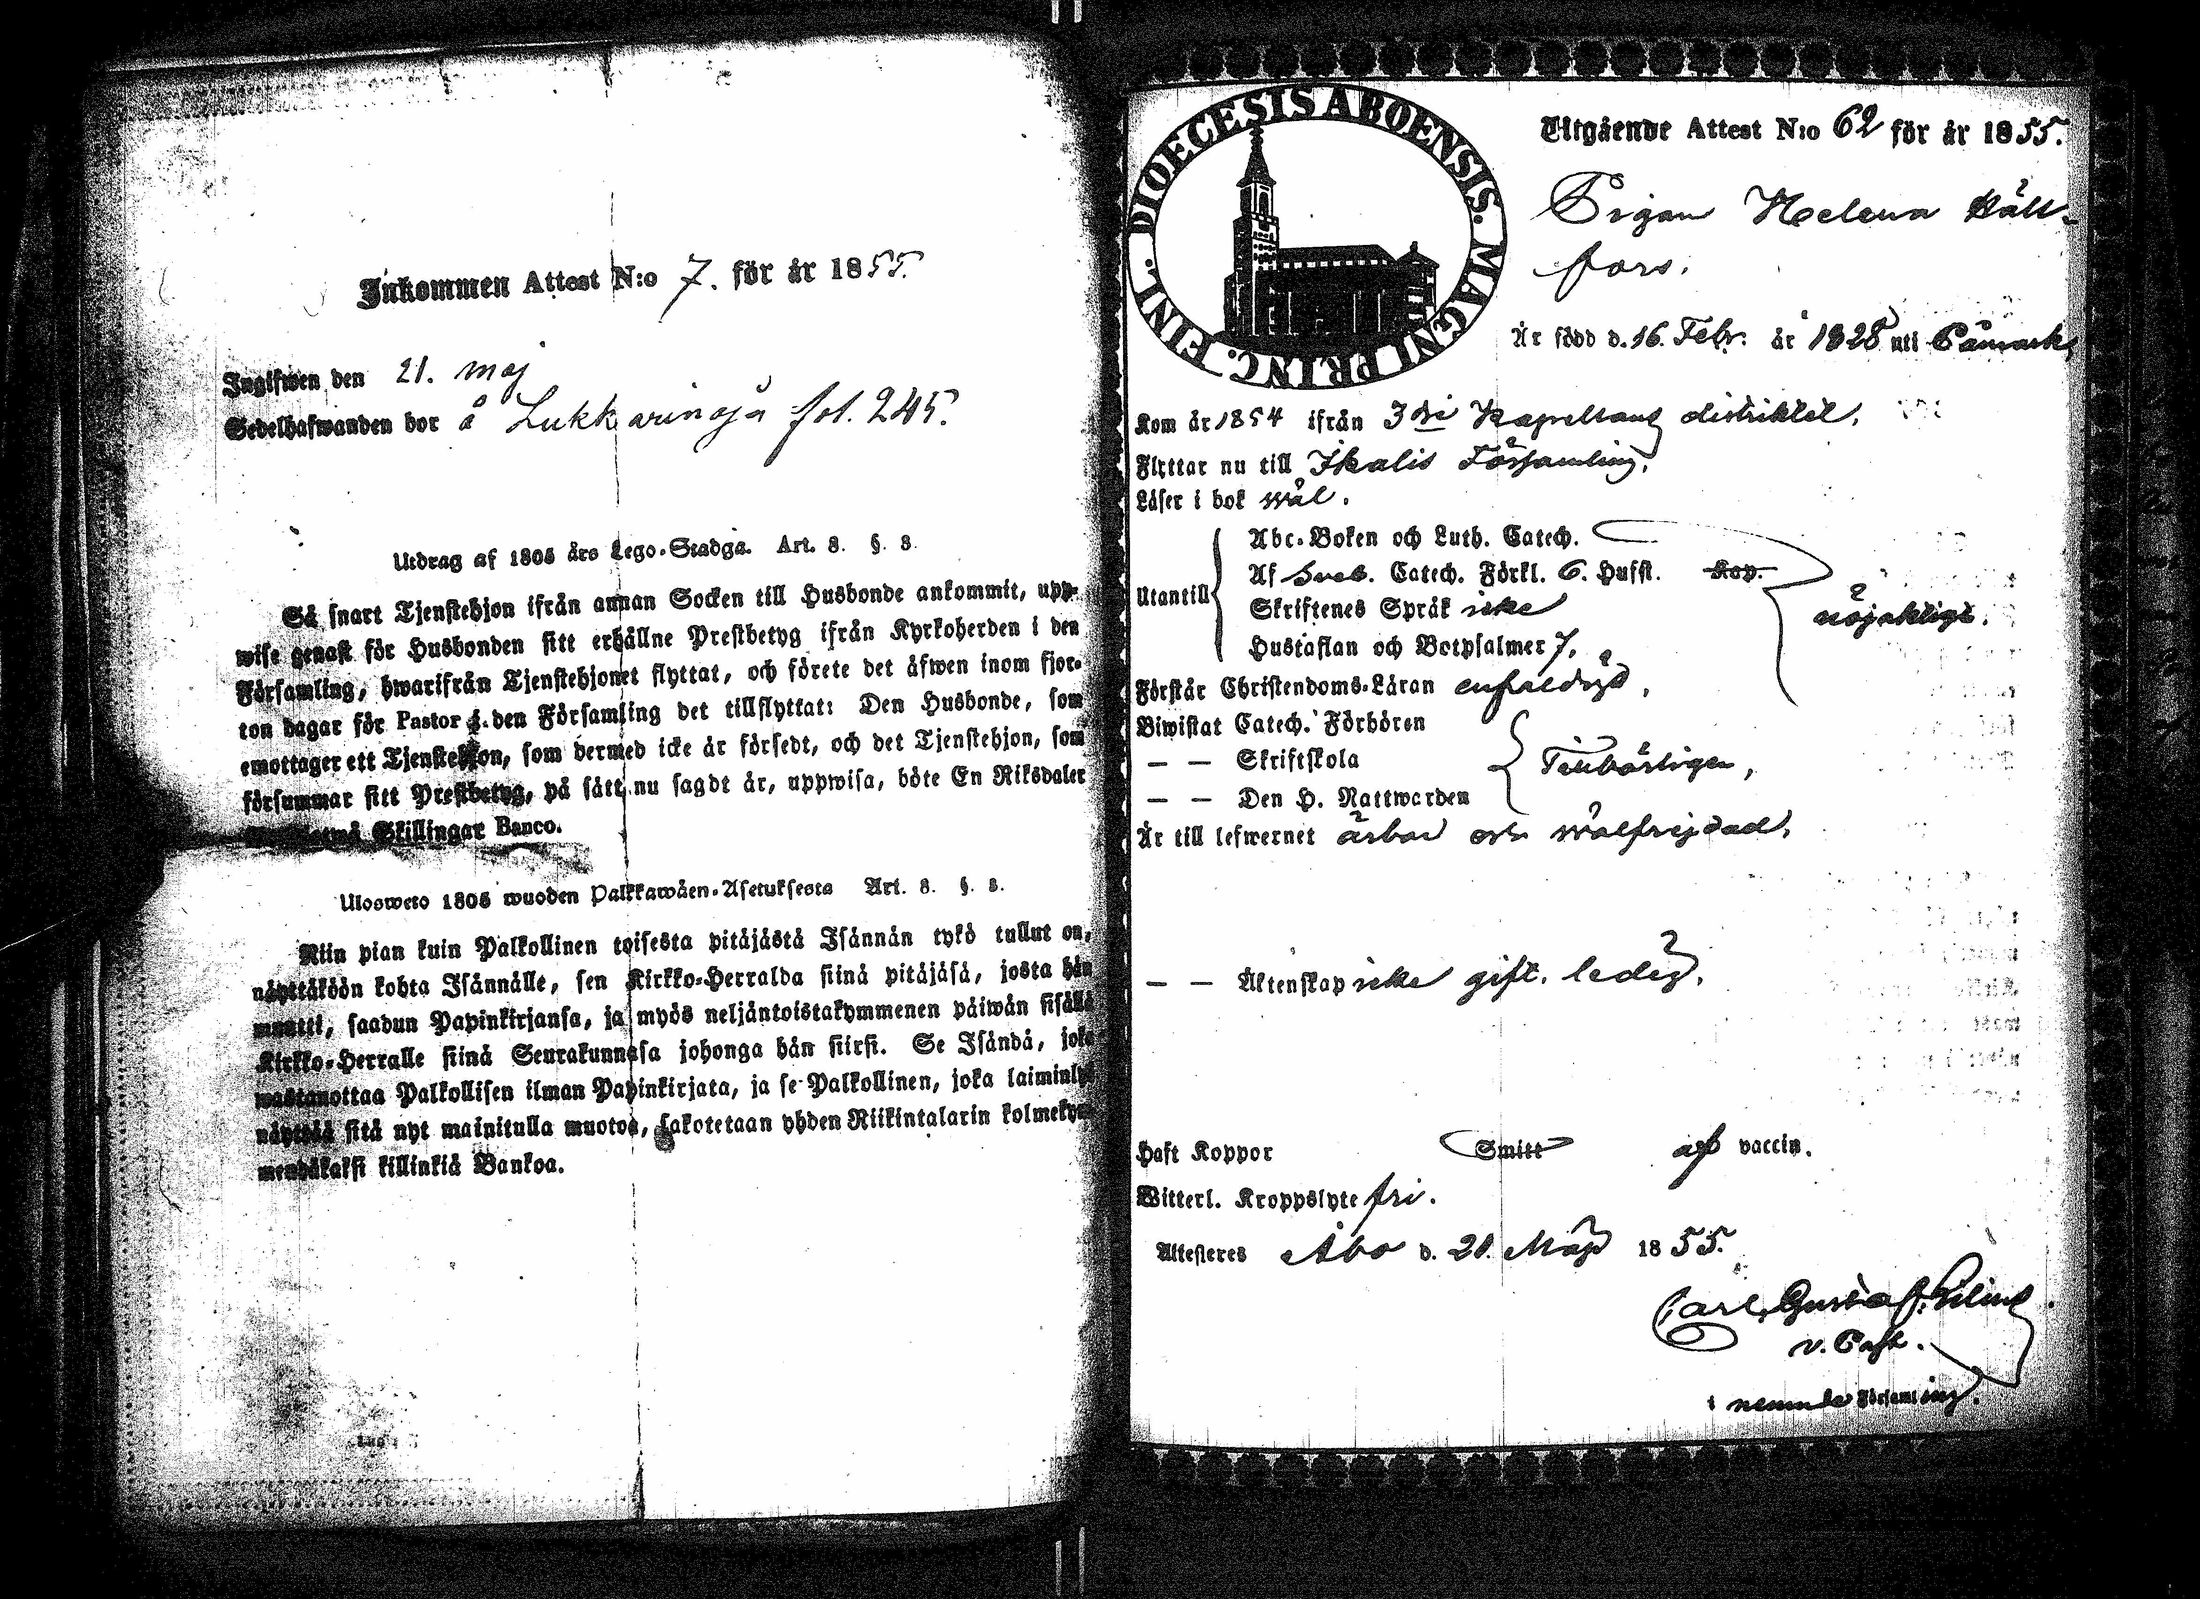 Inkommen Attest N:o 7. för år 1855.
Ingifwen den 21. maj
Sedelhafwanden bor å Lukkarinoja fol. 245.
Utdrag af 1805 års Lego-Stadga. Art. 8. §. 3.
Så snart Tjenstehjon ifrån annan Socken till Husbonde ankommit, upp-
wise genast för Husbonden sitt erhållne Prestbetyg ifrån Kyrkoherden i den
Församling, hwarifrån Tjenstehjonet flyttat, och förete det äfwen inom fjor-
ton dagar för Pastor i den Församling det tillflyttat: Den Husbonde, som
emottager ett Tjenstehjon, som dermed icke är försedt, och det Tjenstehjon, som
försummar sitt Prestbetyg, på sätt nu sagdt är, uppwisa, böte En Riksdaler
Skillingar Banco.
Ulosweto 1805 wuoden Palkkawäen-Asetuksesta Art. 8. §. 3.
Niin pian kuin Palkollinen toisesta pitäjästä Isännän tykö tullut on,
näyttäköön kohta Isännälle, sen Kirkko-Herralda siinä pitäjäsä, josta hän
muutti, saadun Papinkirjansa, ja myös neljäntoistakymmenen päiwän sisällä
Kirkko-Herralle siinä Seurakunnasa johonga hän siirsi. Se Isändä, joka
wastanottaa Palkollisen ilman Papinkirjata, ja se Palkollinen, joka laiminlyö
näyttää sitä nyt mainitulla muotoa, sakotetaan yhden Riikintalarin kolmekym-
mendäkaksi killinkiä Bankoa.
DIOECESIS ABOENSIS. MAGNI PRINC. FINL.
Utgående Attest N:o 62 för år 1855.
Pigan Helena Häll-
fors.
Är född d. 16. Febr. år 1828 uti Påmark,
Kom år 1854 ifrån 3die Kapellans distriktet.
Flyttar nu till Ikalis Församling.
Läser i bok wäl.
Utantill
Abc-Boken och Luth. Catech.
Af Sveb. Catech. Förkl. 6. Hufst. Kap.
Skriftenes Språk icke
Hustaflan och Botpsalmer 7.
nöjaktigt.
Förstår Christendoms-Läran enfaldigt,
Biwistat Catech. Förhören
— — Skriftskola
— — Den H. Nattwarden
Tillbörligen,
Är till lefwernet ärbar och wälfrejdad,
— — Äktenskap icke gift. ledig.
Haft Koppor Smitt af vaccin.
Witterl. Kroppslyte fri.
Attesteres Åbo d. 21. Maji 1855.
Carl Gustaf
v. Past.
i nemnde Församling.